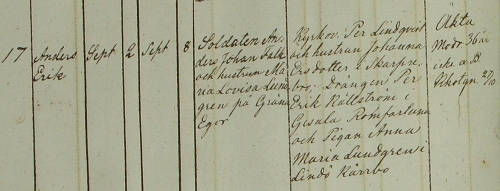 17 Anders Erik
Sept 2 Sept 8
Soldaten An-
ders Johan Falk
och hustrun Ma-
ria Lovisa Lund-
gren på Gräna
Egor
Kyrkov. Per Lindqvist
och hustrun Johanna
Ersdotter i Skarpne-
bro; Drängen Per
Erik Källström i
Romfartuna
och Pigan Anna
Maria Lundgren i
Lindö Kärrbo
Äkta
Modr. 36 år